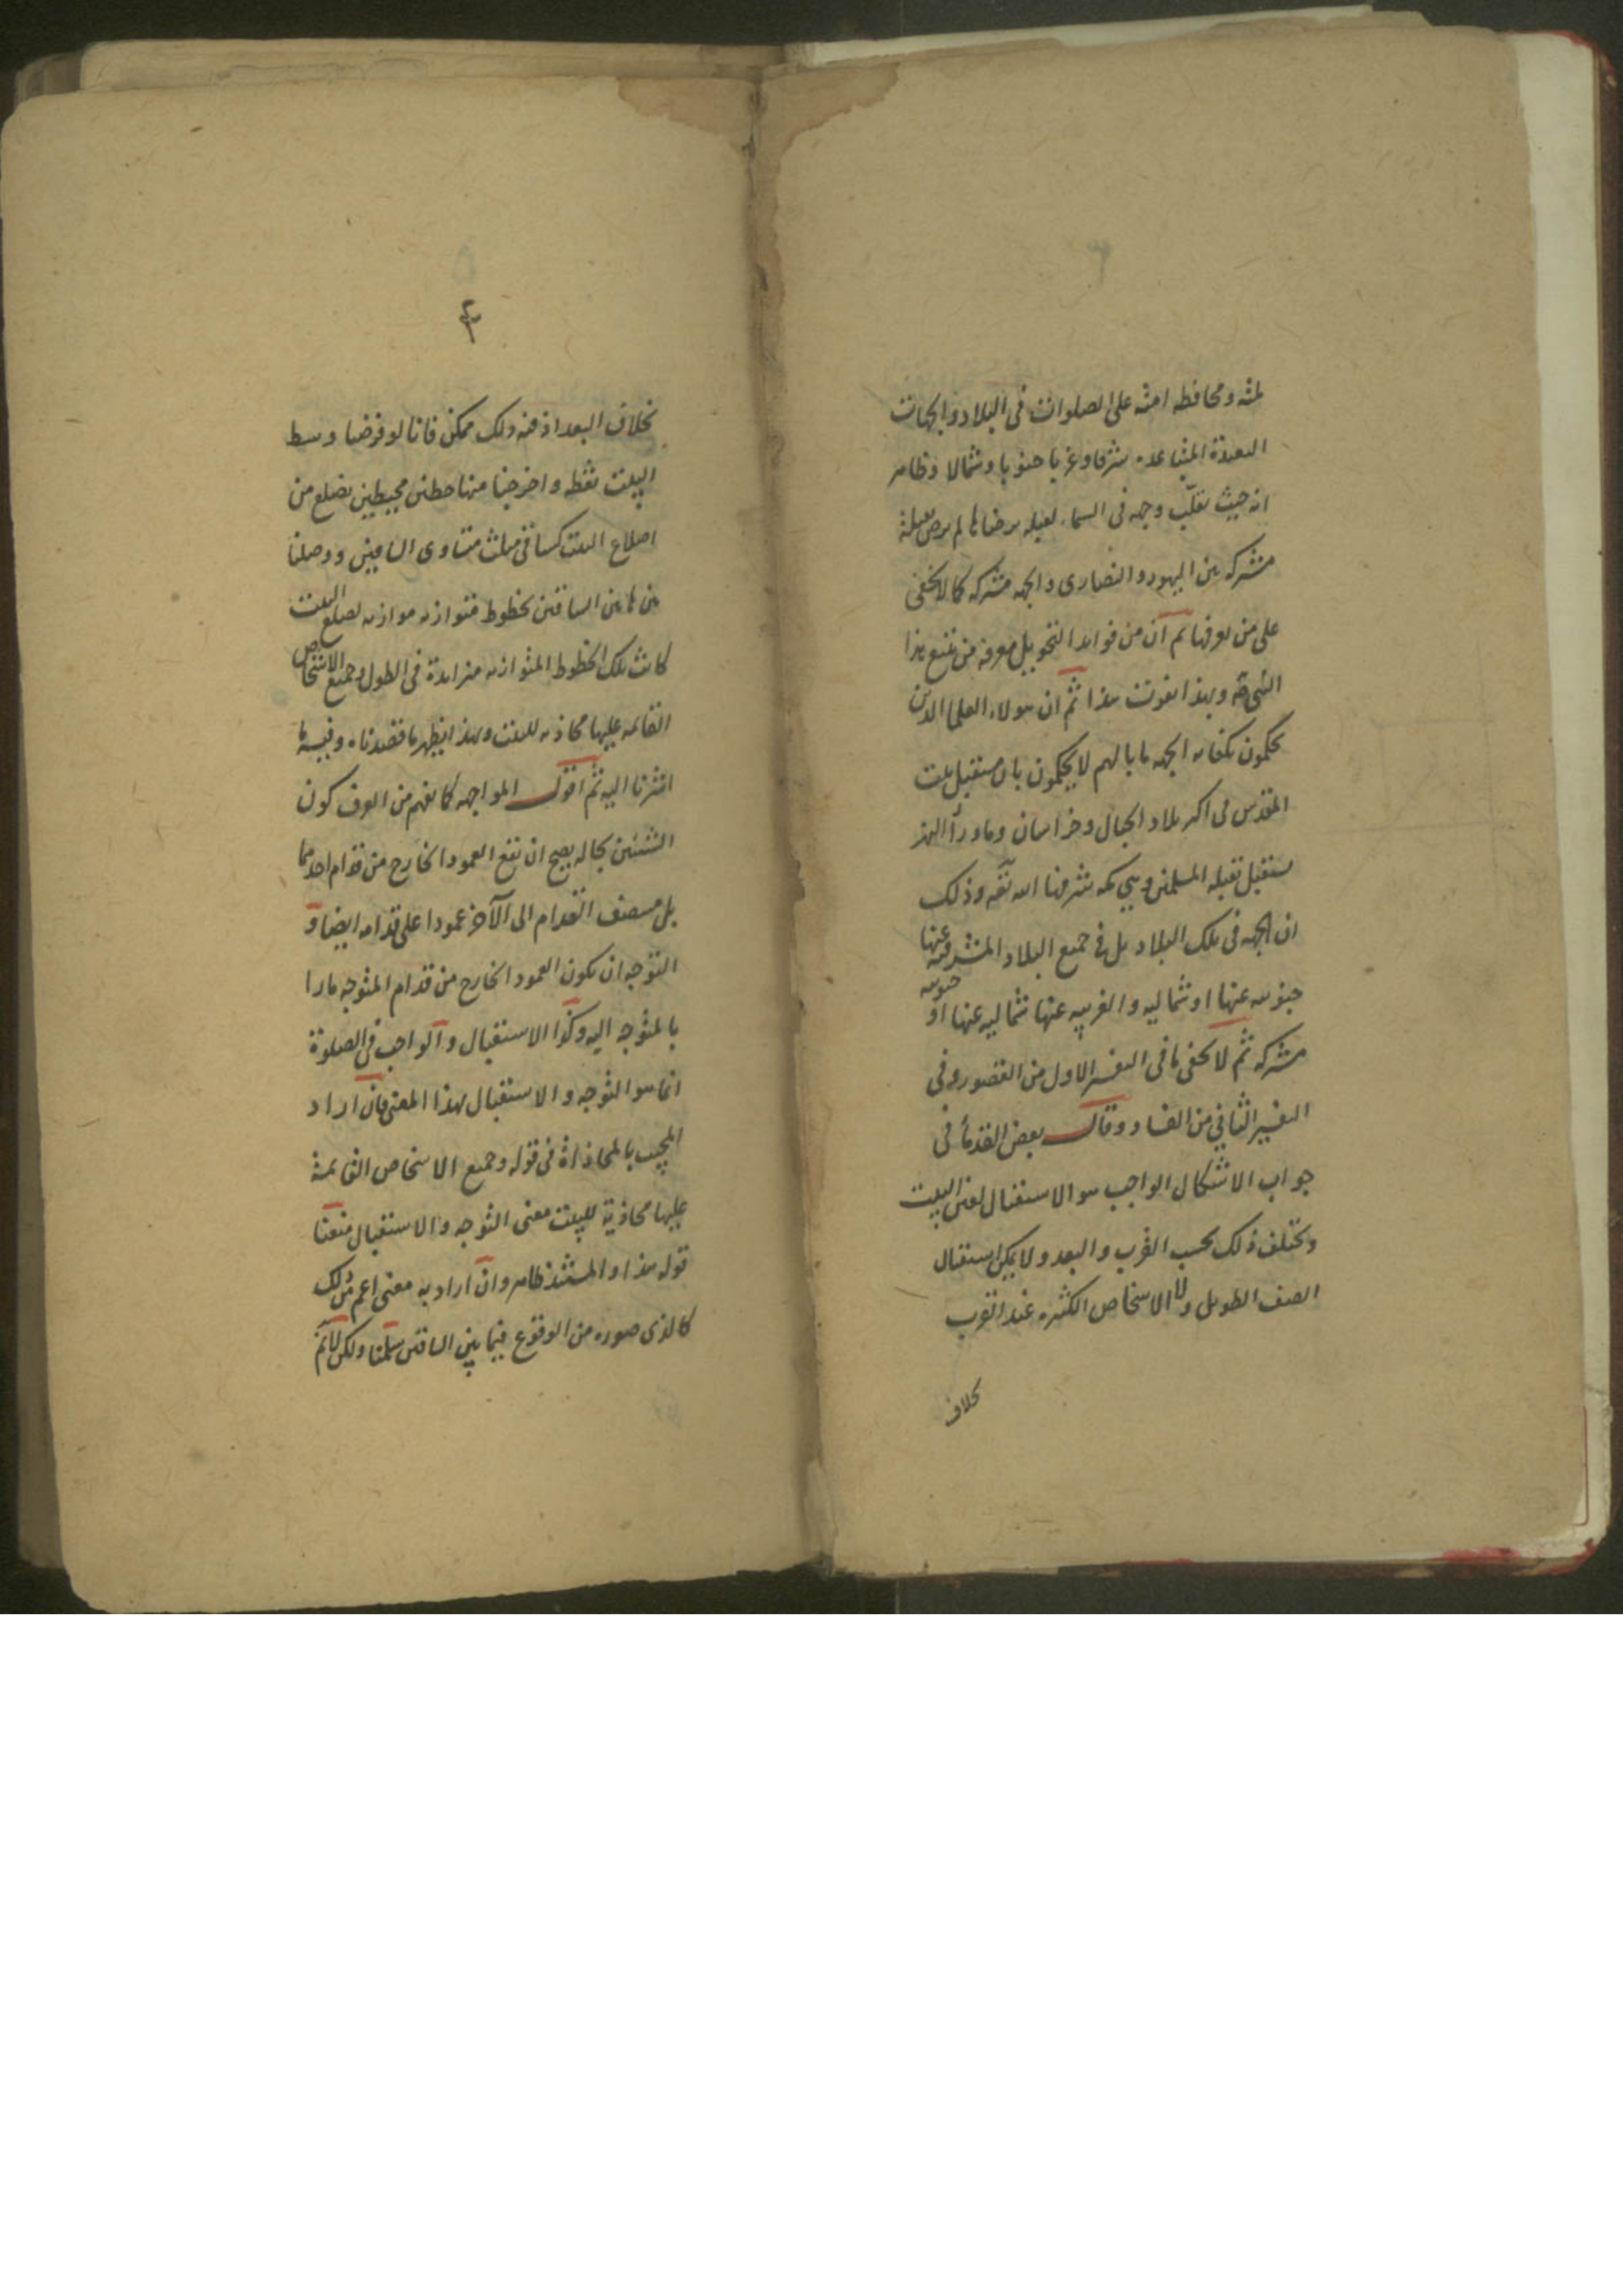 لمته ومحافظه امته على الصلوات في البلاد والجهات
البعيدة المتباعده شرقا وغربا جنوبا وشمالا وظاهر
انه حيث تقلّب وجهه في السماء لقبله يرضاها لم يرض بقبلة
مشتركه بين اليهود والنصارى والجهه مشتركه كما لا يخفى
على من يعرفها ثم ان من فوايد التحويل معرفه من يتبع هذا
النبي حقه وبهذا يفوت هذا ثم ان هولاء العلما الذين
يحكمون بكفايه الجهه ما بالهم لا يحكمون بان مستقبل بيت
المقدس في اكثر بلاد الجبال وخراسان وماوراء النهر
مستقبل لقبله المسلمين وهي مكه شرفنا الله تعه وذلك
ان الجهه في تلك البلاد بل في جميع البلاد المشرقيه عنها
جنوبيه عنها او شماليه والغربيه عنها شماليه عنها او جنوبيه
مشتركه ثم لا يخفى ما في التفسير الاول من القصور وفي
التفسير الثاني من الفساد وقال بعض القدمأ في
جواب الاشكال الواجب هو الاستقبال لعين البيت
ويختلف ذلك بحسب القرب والبعد ولا يمكن استقبال
الصف الطويل ولا الاشخاص الكثيره عند القرب
بخلاف
۴
بخلاف البعد اذ فيه ذلك ممكن فانا لو فرضنا وسط
البيت نقطه واخرجنا منها خطين محيطين بضلع من
اضلاع البيت كساقي مثلث متساوى الساقين ووصلنا
بين ما بين الساقين بخطوط متوازيه موازيه لضلع البيت
كانت تلك الخطوط المتوازيه متزايدة في الطول وجميع الاشخاص
القايمه عليها محاذيه للبيت وبهذا يظهر ما قصدناه وفيه ما
اشرنا اليه ثم اقول المواجهه كما يفهم من العرف كون
الشيئين بحاله يصح ان يقع العمود الخارج من قدام احدهما
بل منصف القدام الى الآخر عمودا على قدامه ايضا و
التوجه ان يكون العمود الخارج من قدام المتوجه مارا
بالمتوجه اليه وكذا الاستقبال والواجب في الصلوة
انما هو التوجه والاستقبال بهذا المعنى فان اراد
المجيب بالمحاذاة في قوله وجميع الاشخاص القائمة
عليها محاذية للبيت معنى التوجه والاستقبال منعنا
قوله هذا والمستند ظاهر وان اراد به معنى اعم من ذلك
كالذى صوره من الوقوع فيما بين الساقين سلمنا ولكن لا نم